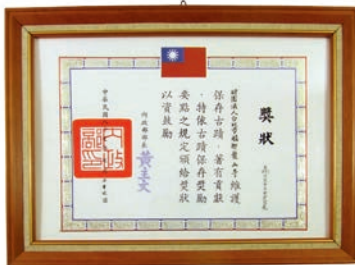 獎狀
財團法人台北市艋舺龍山寺維護
保存古蹟,著有貢獻
,特依古蹟保存獎勵
要點之規定頒給獎狀
以資鼓勵
內政部部長 黃主文
中華民國八
內政部印